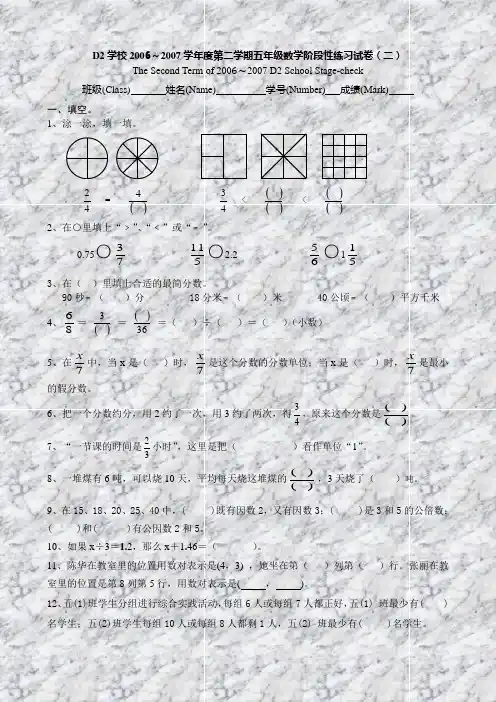 D2学校2006～2007学年度第二学期五年级数学阶段性练习试卷（二）
The Second Term of 2006～2007 D2 School Stage-check
班级(Class)______姓名(Name)__________学号(Number)___成绩(Mark)_____
一、填空。
1、涂一涂，填一填。
2/4 = 4/( ) 3/4 < ( )/( ) < ( )/( )
2、在○里填上“＞”、“＜”或“＝”
0.75○3/7 11/5○2.2 5/6○1 1/5
3、在（ ）里填上合适的最简分数。
90秒=（ ）分 18分米=（ ）米 40公顷=（ ）平方千米
4、6/8 = 3/( ) = ( )/36 =（ ）÷（ ）=（ ）(小数)
5、在x/7中，当x是（ ）时，x/7是这个分数的分数单位；当x是（ ）时，x/7是最小
的假分数。
6、把一个分数约分，用2约了一次，用3约了两次，得3/4。原来这个分数是( )/( )
7、“一节课的时间是2/3小时”，这里是把（ ）看作单位“1”。
8、一堆煤有6吨，可以烧10天，平均每天烧这堆煤的( )/( )，3天烧了（ ）吨。
9、在15、18、20、25、40中，（ ）既有因数2，又有因数3；（ ）是3和5的公倍数；
（ ）和（ ）有公因数2和5。
10、如果x÷3=1.2，那么x＋1.46＝（ ）。
11、陈华在教室里的位置用数对表示是(4，3)，她坐在第（ ）列第（ ）行。张丽在教
室里的位置是第8列第5行，用数对表示是(____，____)。
12、五(1)班学生分组进行综合实践活动，每组6人或每组7人都正好，五(1) 班最少有（ ）
名学生；五(2)班学生每组10人或每组8人都剩1人，五(2) 班最少有（ ）名学生。